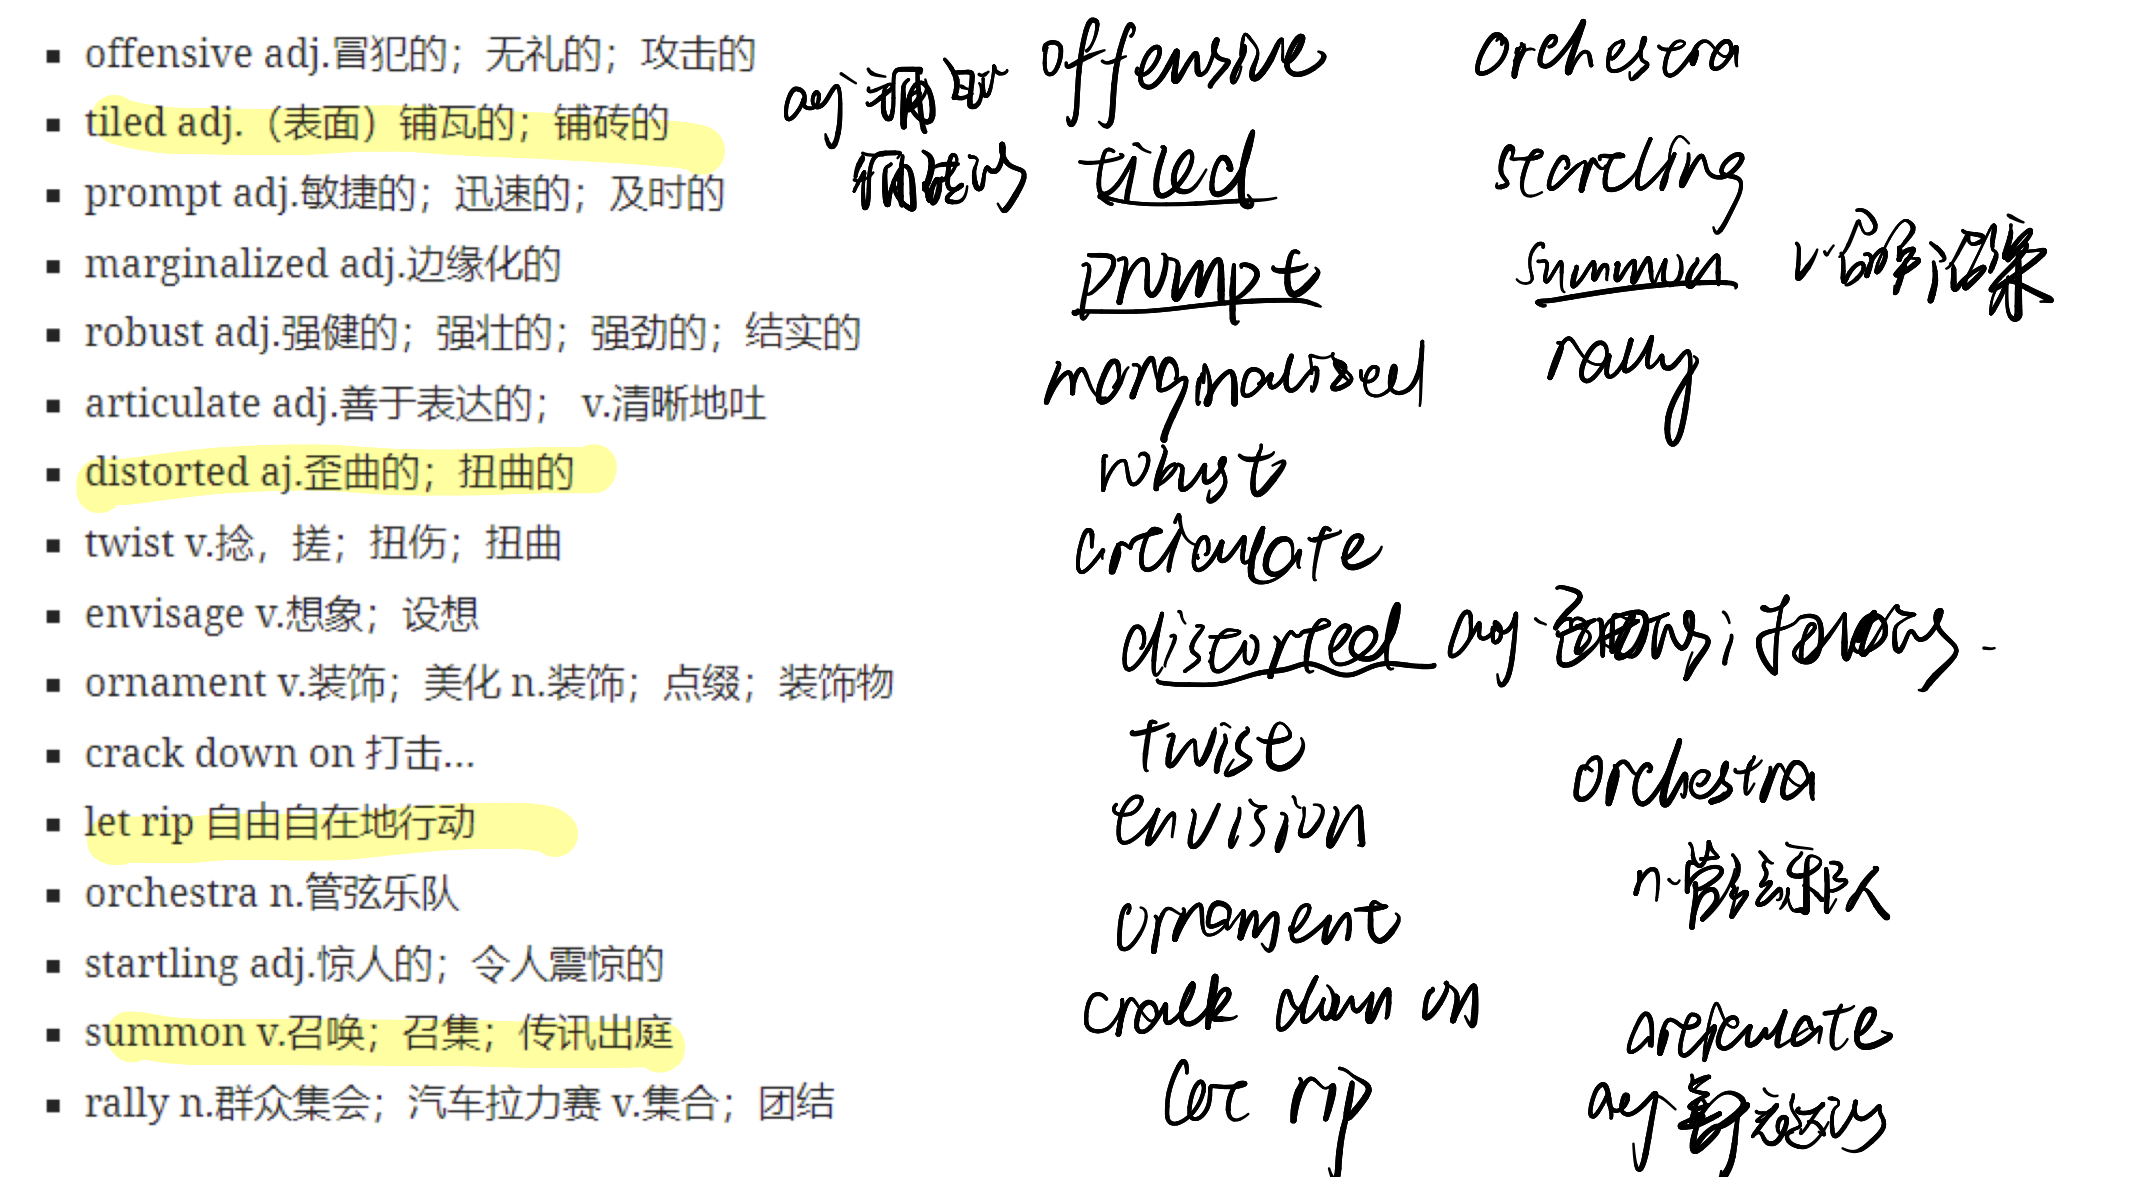 ▪ offensive adj.冒犯的；无礼的；攻击的
▪ tiled adj.（表面）铺瓦的；铺砖的
▪ prompt adj.敏捷的；迅速的；及时的
▪ marginalized adj.边缘化的
▪ robust adj.强健的；强壮的；强劲的；结实的
▪ articulate adj.善于表达的； v.清晰地吐
▪ distorted aj.歪曲的；扭曲的
▪ twist v.捻，搓；扭伤；扭曲
▪ envisage v.想象；设想
▪ ornament v.装饰；美化 n.装饰；点缀；装饰物
▪ crack down on 打击...
▪ let rip 自由自在地行动
▪ orchestra n.管弦乐队
▪ startling adj.惊人的；令人震惊的
▪ summon v.召唤；召集；传讯出庭
▪ rally n.群众集会；汽车拉力赛 v.集合；团结
offensive
tiled
铺砖的
prompt
marginalized
robust
articulate
distorted adj.
twist
envision
ornament
crack down on
let rip
orchestra
startling
summon v.
rally
orchestra
n.管弦乐队
articulate
adj.善于表达的